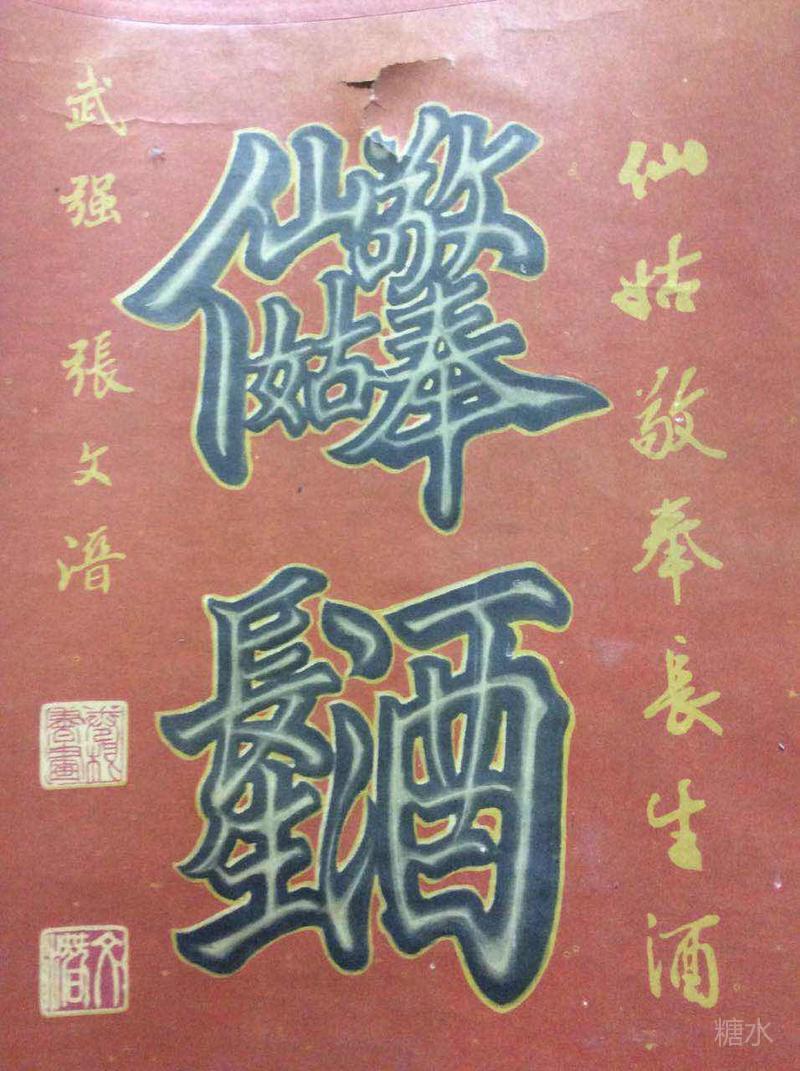 仙姑敬奉長生酒
仙姑敬奉
長生酒
武强 張文潛
文潛
糖水